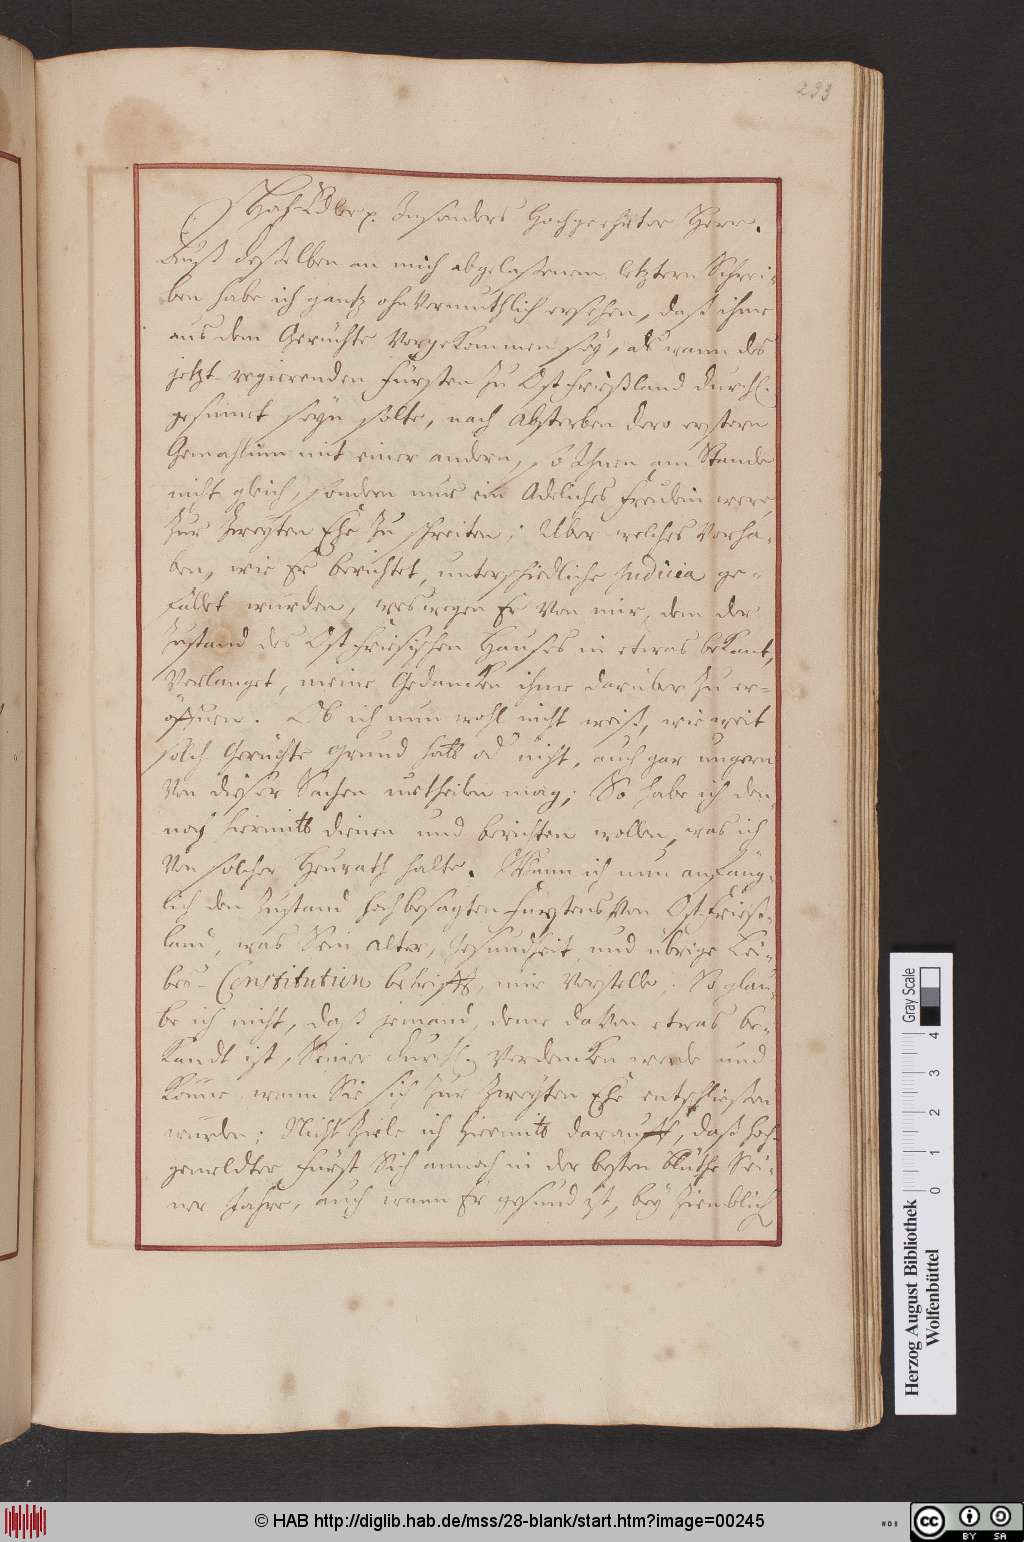 233
HochEdler p. Insonders hochgeehrter Herr.
Auß deßelben an mich abgelaßenem letztern Schrei-
ben habe ich gantz ohnvermuthlich ersehen, daß ihme
aus dem Gerüchte vorgekommen seÿ, als wann des
jetzt-regierenden Fürsten zu Ostfrießland Durchl.
gesinnet seyn solte, nach absterben dero erstern
Gemahlinn mit einer andern, so Ihnen am Stande
nicht gleich, sondern nur ein Adeliches Freulein were,
zur Zweyten Ehe zu schreiten; Über welches Vorha-
ben, wie Er berichtet, unterschiedliche Judicia ge-
fället wurden, weswegen Er von mir, dem der
Zustand des Ostfriesischen Hauses in etwas bekant,
verlanget, meine Gedancken ihme darüber zu er-
öffnen. Ob ich nun wohl nicht weiß, wie weit
solch Gerüchte grund hatt od nicht, auch gar ungern
von dieser Sachen urtheilen mag; So habe ich den-
noch hiermitt dienen und berichten wollen, was ich
von solcher Heurath halte. Wann ich nun anfäng-
lich den Zustand hochbesagten Fürstens von Ostfrieß-
land, was Sein alter, Gesundheit und übrige Lei-
bes-Constitution betrifft, mir vorstelle. So glau-
be ich nicht, daß jemand, deme davon etwas be-
kandt ist, Seiner Durchl. verdencken werde und
könne, wenn Sie sich zur Zweyten Ehe entschließen
wurden; Nicht Ziele ich hiermitt darauff, daß hoch-
gemeldter Fürst Sich annoch in der besten blüthe Sei-
ner Jahre, auch wann Er gesund ist, beÿ Ziemblich
Herzog August Bibliothek
Wolfenbüttel
Gray Scale
0 1 2 3 4
© HAB http://diglib.hab.de/mss/28-blank/start.htm?image=00245
WDB
cc BY SA